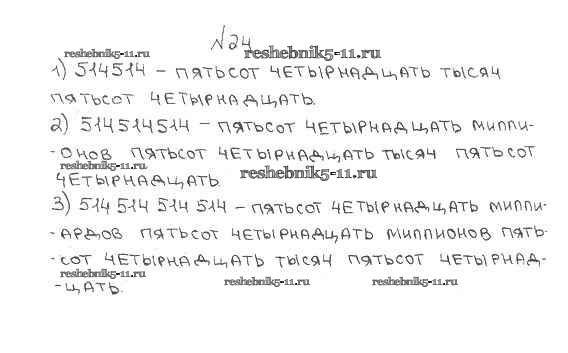 №24
reshebnik5-11.ru reshebnik5-11.ru
1) 514514 – пятьсот четырнадцать тысяч
пятьсот четырнадцать.
2) 514514514 – пятьсот четырнадцать милли-
-онов пятьсот четырнадцать тысяч пятьсот
reshebnik5-11.ru reshebnik5-11.ru
четырнадцать.
3) 514 514 514 514 – пятьсот четырнадцать милли-
-ардов пятьсот четырнадцать миллионов пять-
-сот четырнадцать тысяч пятьсот четырнад-
reshebnik5-11.ru reshebnik5-11.ru reshebnik5-11.ru
-цать.